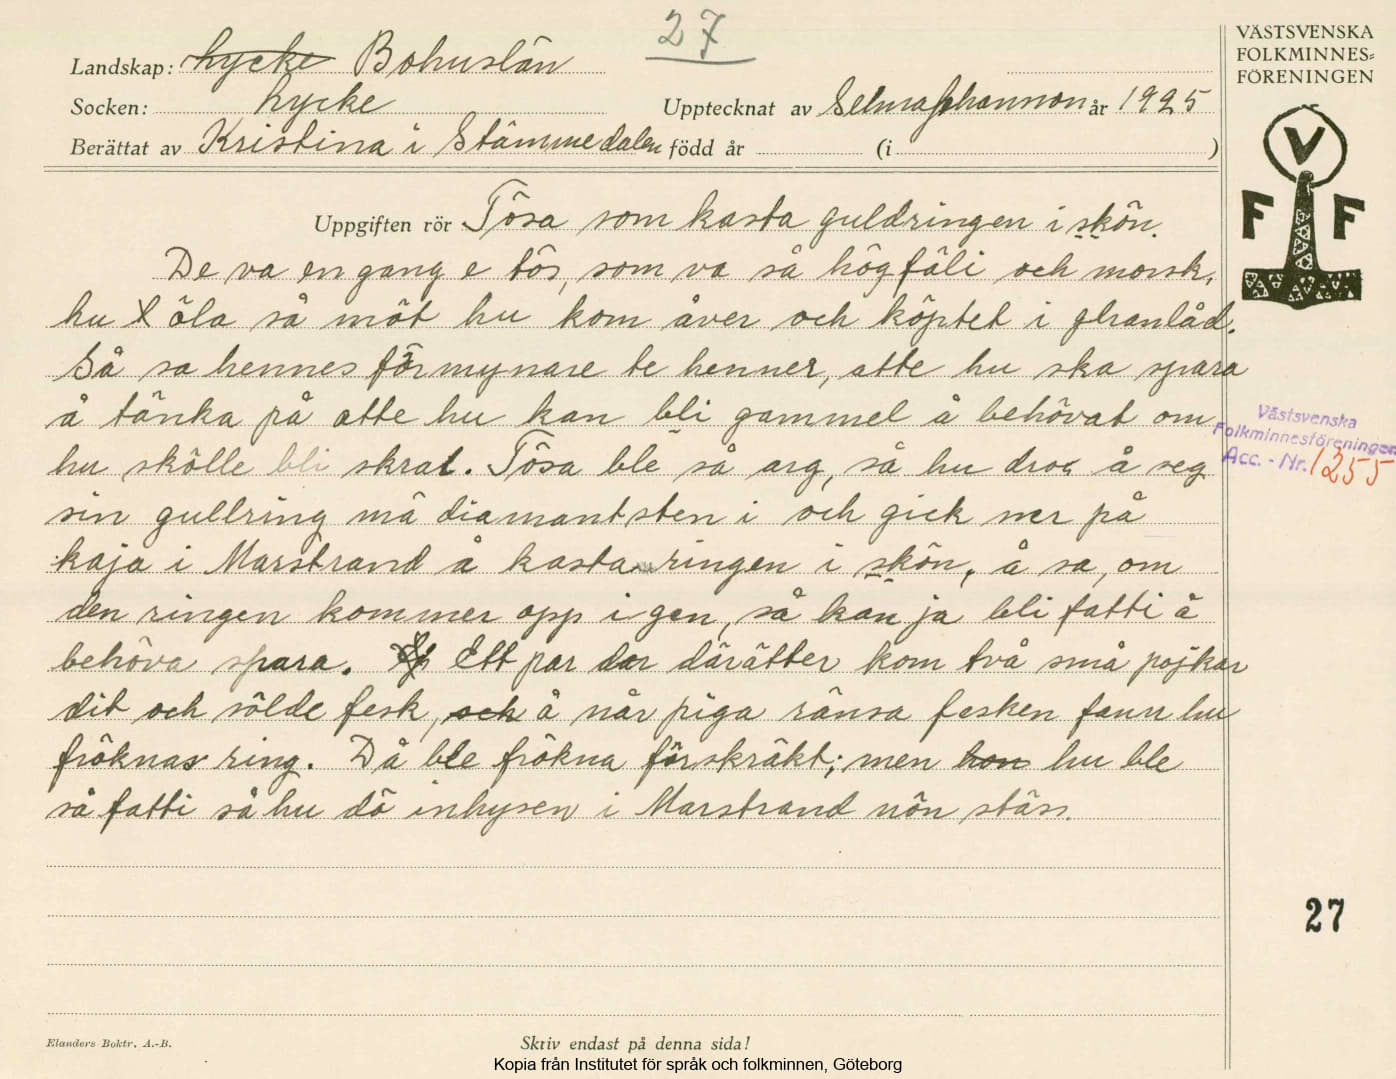 27
VÄSTSVENSKA
FOLKMINNES=
FÖRENINGEN
V
F F
Landskap: Lycke Bohuslän
Socken: Lycke
Upptecknat av Selma Johannson år 1925
Berättat av Kristina i Stämmedalen född år (i )
Uppgiften rör Tösa som kasta guldringen i skön.
De va en gang e tös, som va så högfäli och morsk,
hu öla så möt hu kom åver och köptet i ghranlåd.
Så sa hennes förmynare te henner, atte hu ska spara
å tänka på atte hu kan bli gammel å behövat om
hu skölle bli skral. Tösa ble så arg, så hu drog å seg
sin gullring mä diamantsten i och gick ner på
kaja i Marstrand å kasta ringen i skön, å sa, om
den ringen kommer opp igen, så kan ja bli fatti å
behöva spara. Ett par dar därätter kom två små pojkar
dit och sölde fesk, och å når piga ränsa fesken fann hu
fröknas ring. Då ble frökna förskräkt; men hon hu ble
så fatti så hu dö inhysen i Marstrand nön stäss.
Västsvenska
Folkminnesföreningen
Acc. - Nr. 1255
27
Elanders Boktr. A.-B.
Skriv endast på denna sida!
Kopia från Institutet för språk och folkminnen, Göteborg